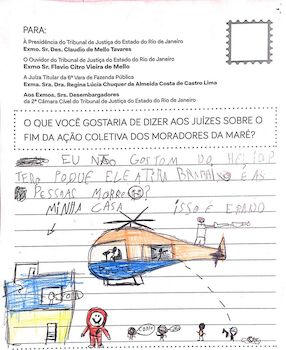 PARA:
À Presidência do Tribunal de Justiça do Estado do Rio de Janeiro
Exmo. Sr. Des. Claudio de Mello Tavares
O Ouvidor do Tribunal de Justiça do Estado do Rio de Janeiro
Exmo Sr. Flavio Citro Vieira de Mello
A Juíza Titular da 6ª Vara de Fazenda Pública
Exma. Sra. Dra. Regina Lúcia Chuquer de Almeida Costa de Castro Lima
Aos Exmos. Srs. Desembargadores
da 2ª Câmara Cível do Tribunal de Justiça do Estado do Rio de Janeiro
O QUE VOCÊ GOSTARIA DE DIZER AOS JUÍZES SOBRE O
FIM DA AÇÃO COLETIVA DOS MORADORES DA MARÉ?
EU NÃO GOSTOM DO HELICOP
TERO POQUE ELE ATIRA E AS
PESSOAS MORRE
MINHA CASA ISSO É ERADO